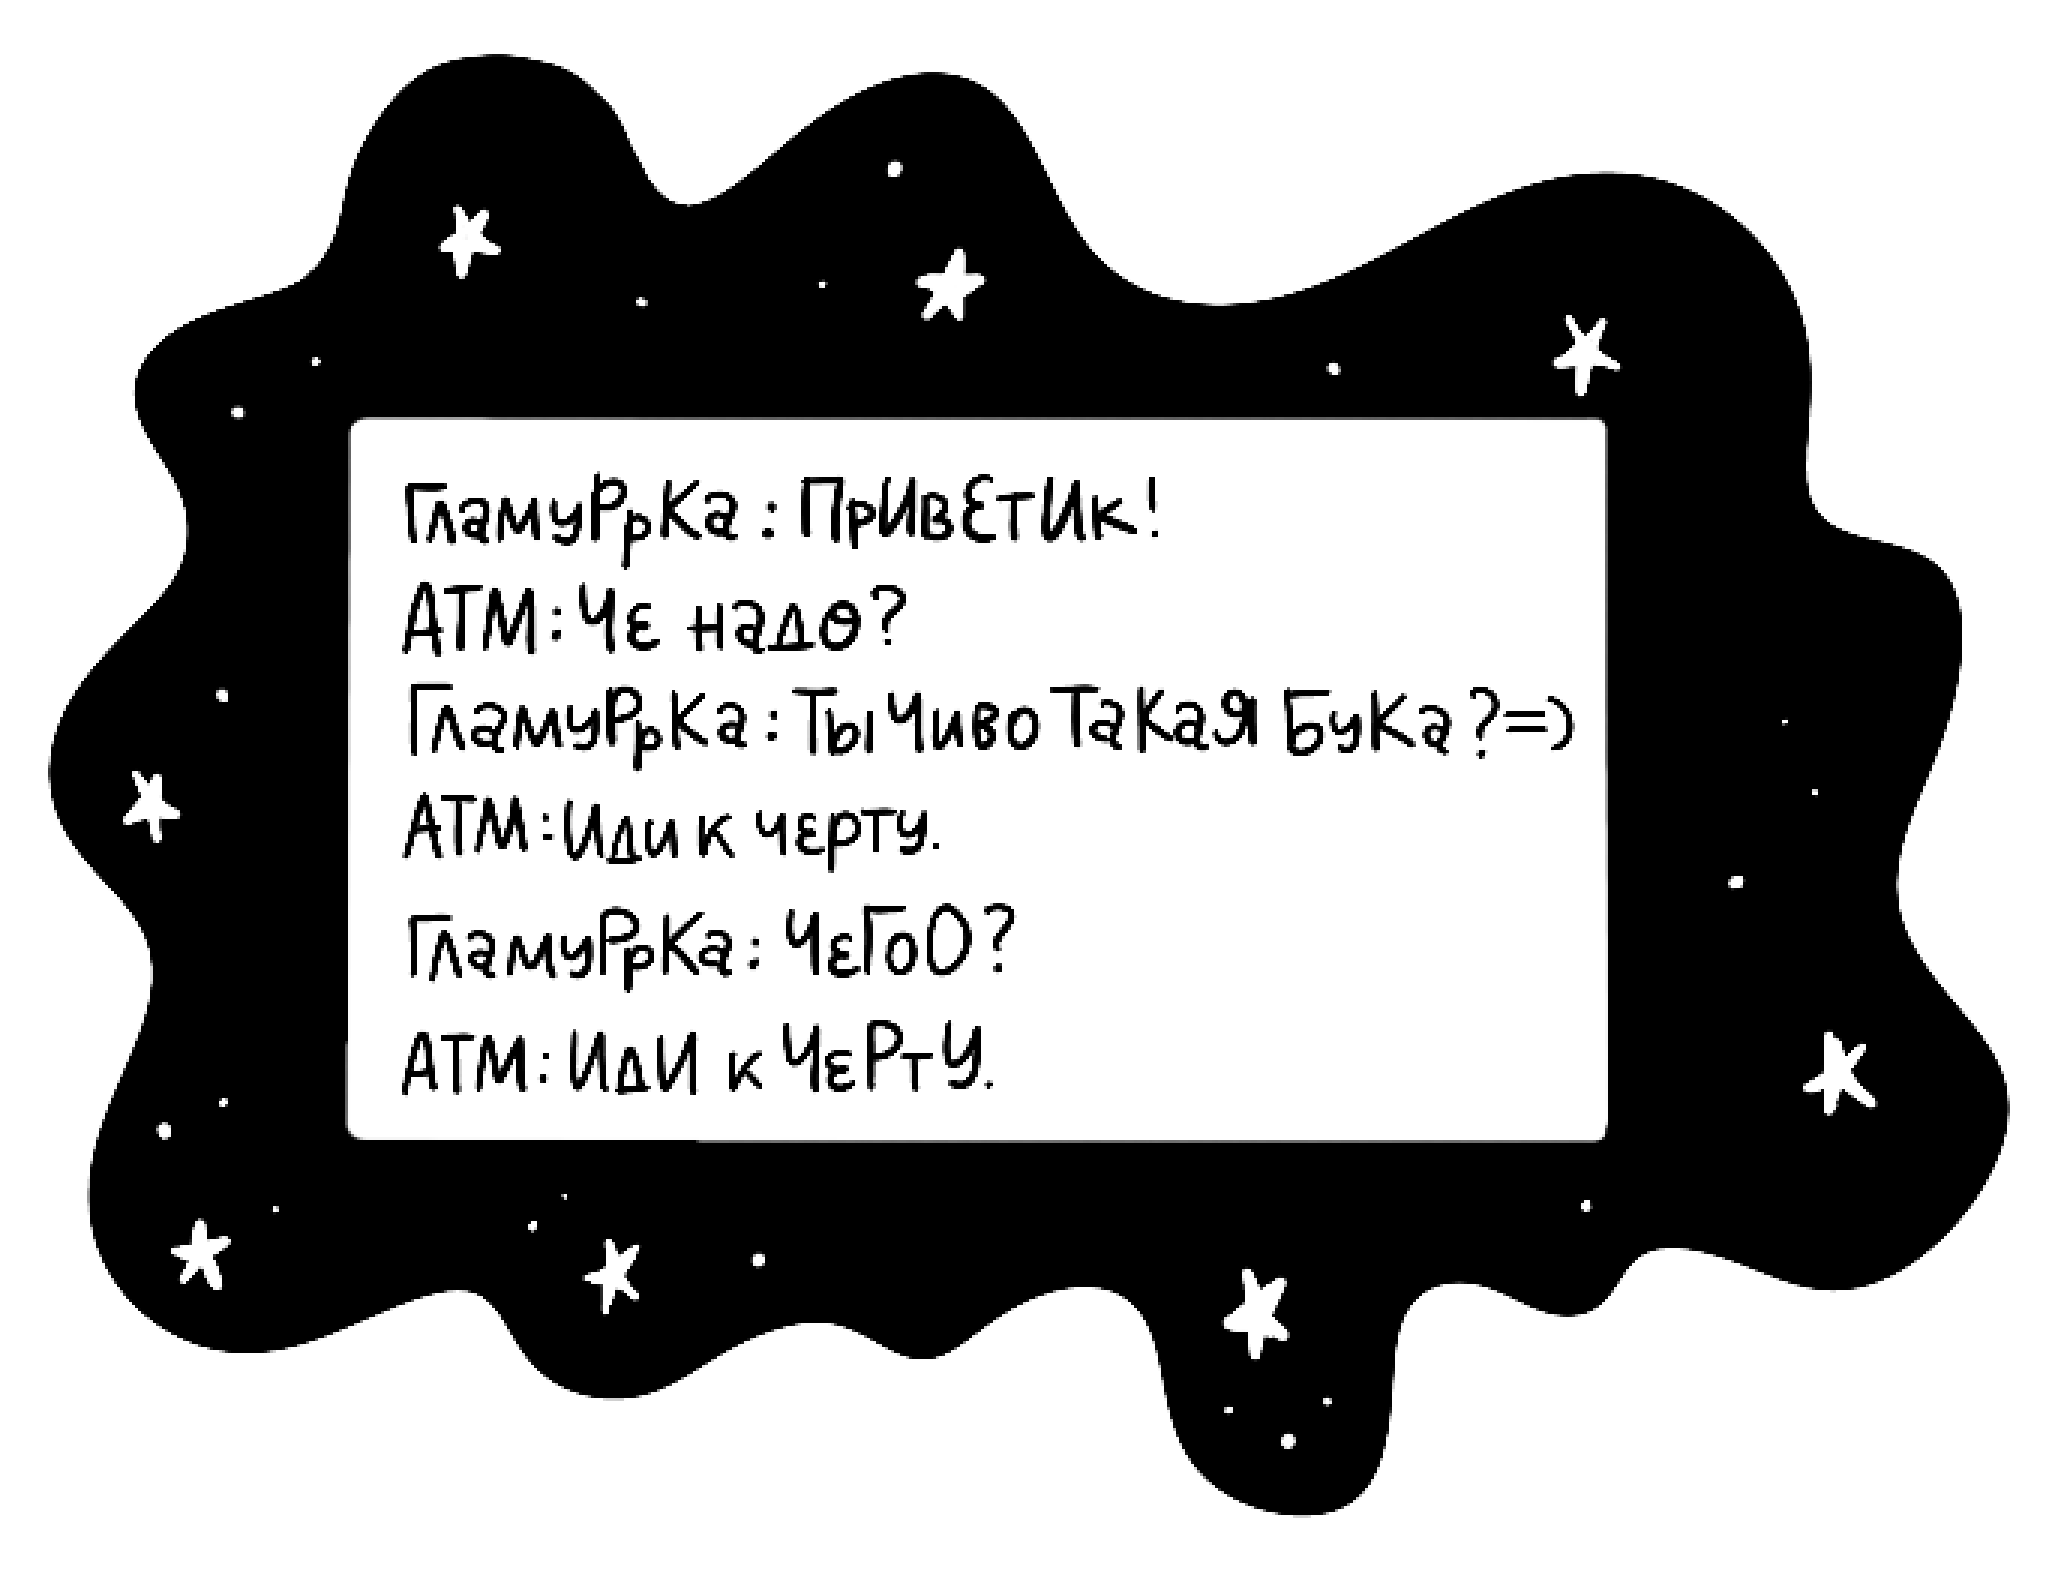 ГламуРрКа: ПрИвЕтИк!
АТМ: Че надо?
ГламуРрКа: Ты Чиво ТаКаЯ БуКа?=)
АТМ: Иди к черту.
ГламуРрКа: ЧеГоО?
АТМ: ИдИ к ЧеРтУ.